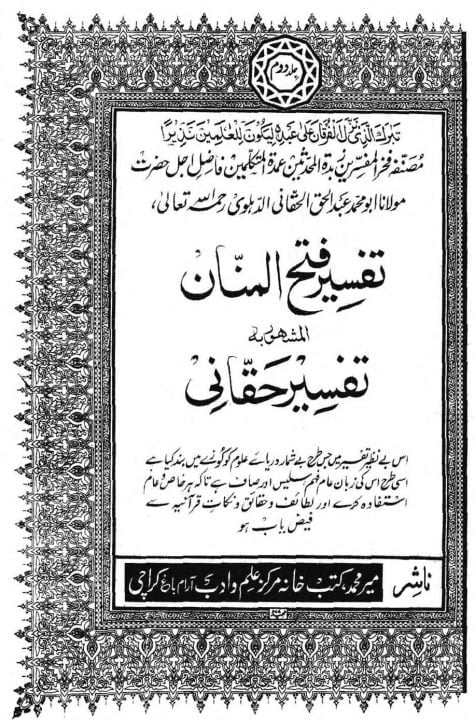 جلد دوم
تبارك الذي نزل الفرقان على عبده ليكون للعلمين نذيرا
مصنفہ فخر المفسرین زبدۃ المحدثین عمدۃ المتکلمین فاضل اجل حضرت
مولانا ابو محمد عبد الحق الحقانی الدہلوی رحمہ اللہ تعالیٰ،
تفسیر فتح المنّان
المشہور بہ
تفسیر حقّانی
اس بے نظیر تفسیر میں جس طرح بے شمار دریائے علوم کو کوزے میں بند کیا ہے
اسی طرح اس کی زبان عام فہم سلیس اور صاف ہے تاکہ ہر خاص و عام
استفادہ کرے اور لطائف و حقائق و نکات قرآنیہ سے
فیض یاب ہو
ناشر میر محمد، کتب خانہ مرکز علم و ادب آرام باغ کراچی